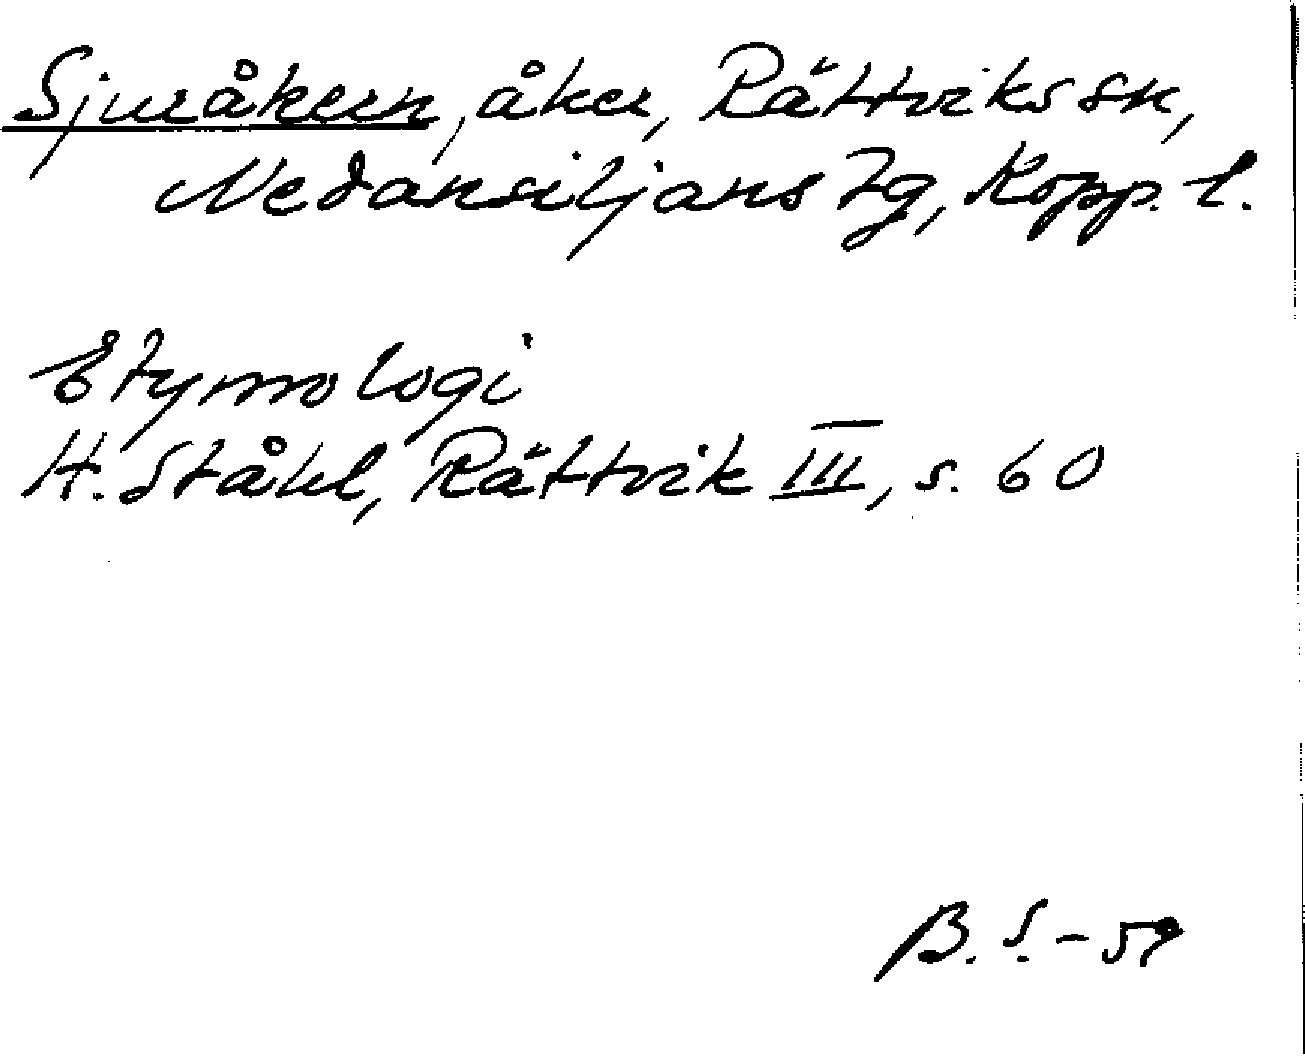 Sjuråkern, åker, Rättviks sn,
Nedansiljans tg, Kopp. l.
Etymologi
H. Ståhl, Rättvik III, s. 60
B. S. - 59